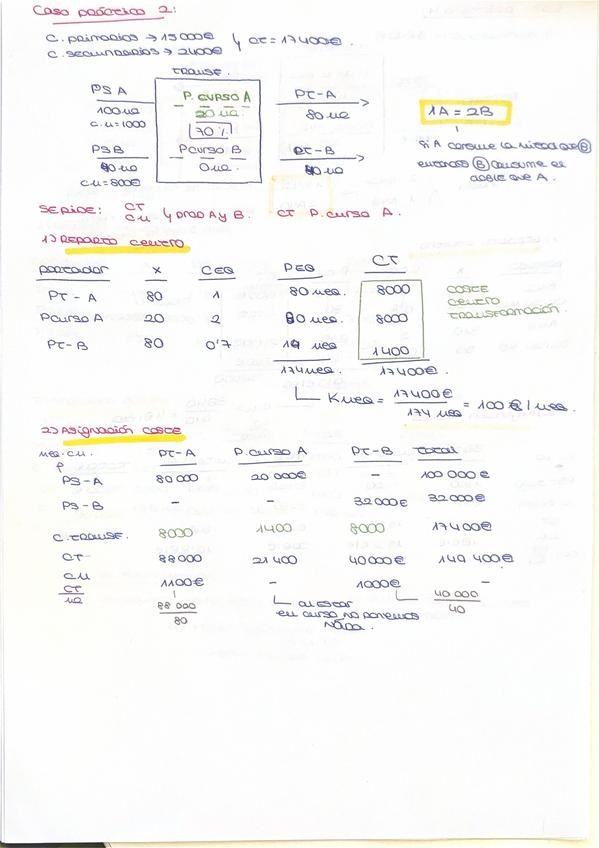 Caso práctico 2:
C. primarios → 15000€ } CT = 17400€.
C. secundarios → 2400€
TRANSF.
PS A
100 ua
c.u = 1000
P. CURSO A
20 ua
70 %
PT-A
80 ua
1A = 2B
PS B
40 ua
c.u = 800€
P curso B
0 ua
PT-B
40 ua
Si A consume la mitad que B
entonces B consume el
doble que A.
SE PIDE: CT
CU } prod A y B. CT P. curso A.
1) REPARTO CENTRO
PORTADOR X CEQ PEQ CT
PT - A 80 1 80 ueq. 8000
P curso A 20 2 80 ueq. 8000
PT - B 80 0'7 14 ueq 1400
COSTE
CENTRO
TRANSFORMACIÓN.
174 ueq. 17400€
Kueq = 17400€ / 174 ueq = 100 € / ueq.
2) Asignación coste
PT-A P. curso A PT-B TOTAL
PS-A 80 000 20 000€ - 100 000€
PS-B - - 32 000€ 32 000€
C. TRANSF. 8000 1400 8000 17400€
CT 88 000 21 400 40 000€ 149 400€
CU 1100€ - 1000€ -
CT
ua
88 000
80
al estar
en curso no ponemos
NADA.
40 000
40